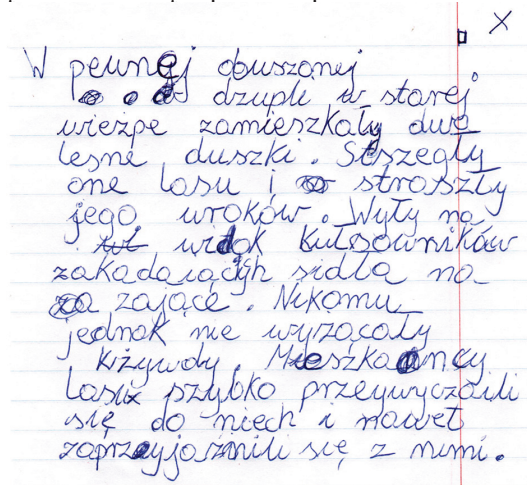 X
W pewnej obuszonej
dzupli w starej
wierzpe zamieszkały dwe
leśne duszki. Stszegły
one lasu i straszły
jego uroków. Wyły na
widok kułsowników
zakadającyh sidła na
zające. Nikomu
jednak nie wyrzącały
kiżywdy. Mieszkańncy
Lasu szybko przeywyczaili
się do niech i nawet
zaprzyjaźnili się z nimi.